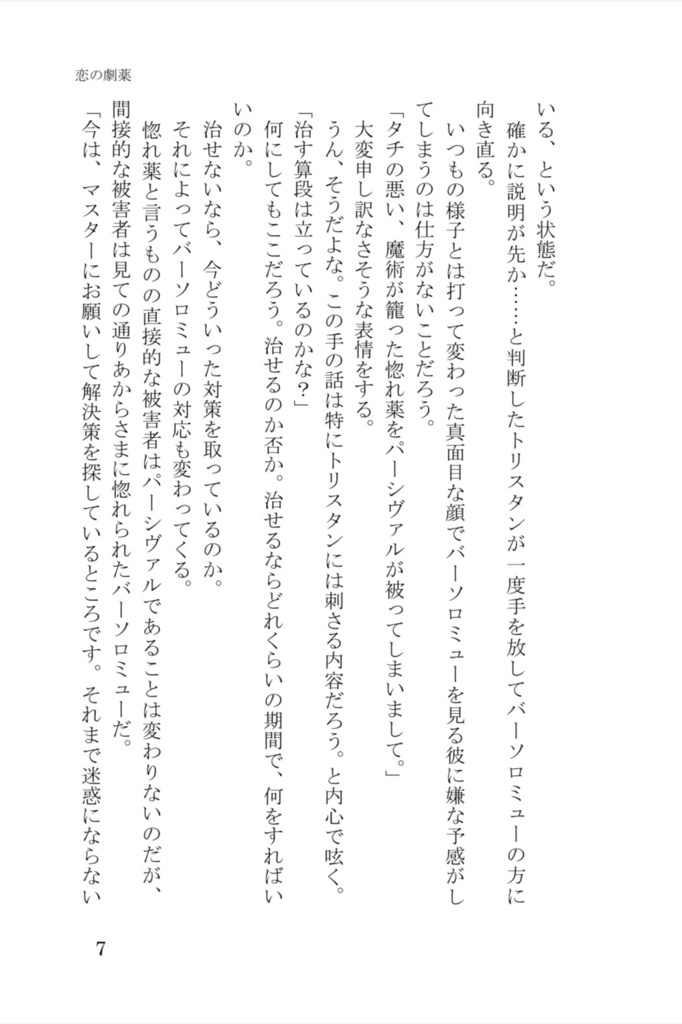 恋の劇薬
いる、という状態だ。
　確かに説明が先か……と判断したトリスタンが一度手を放してバーソロミューの方に
向き直る。
　いつもの様子とは打って変わった真面目な顔でバーソロミューを見る彼に嫌な予感がし
てしまうのは仕方がないことだろう。
「タチの悪い、魔術が籠った惚れ薬をパーシヴァルが被ってしまいまして。」
　大変申し訳なさそうな表情をする。
　うん、そうだよな。この手の話は特にトリスタンには刺さる内容だろう。と内心で呟く。
「治す算段は立っているのかな？」
　何にしてもここだろう。治せるのか否か。治せるならどれくらいの期間で、何をすればい
いのか。
　治せないなら、今どういった対策を取っているのか。
　それによってバーソロミューの対応も変わってくる。
　惚れ薬と言うものの直接的な被害者はパーシヴァルであることは変わりないのだが、
間接的な被害者は見ての通りあからさまに惚れられたバーソロミューだ。
「今は、マスターにお願いして解決策を探しているところです。それまで迷惑にならない
7